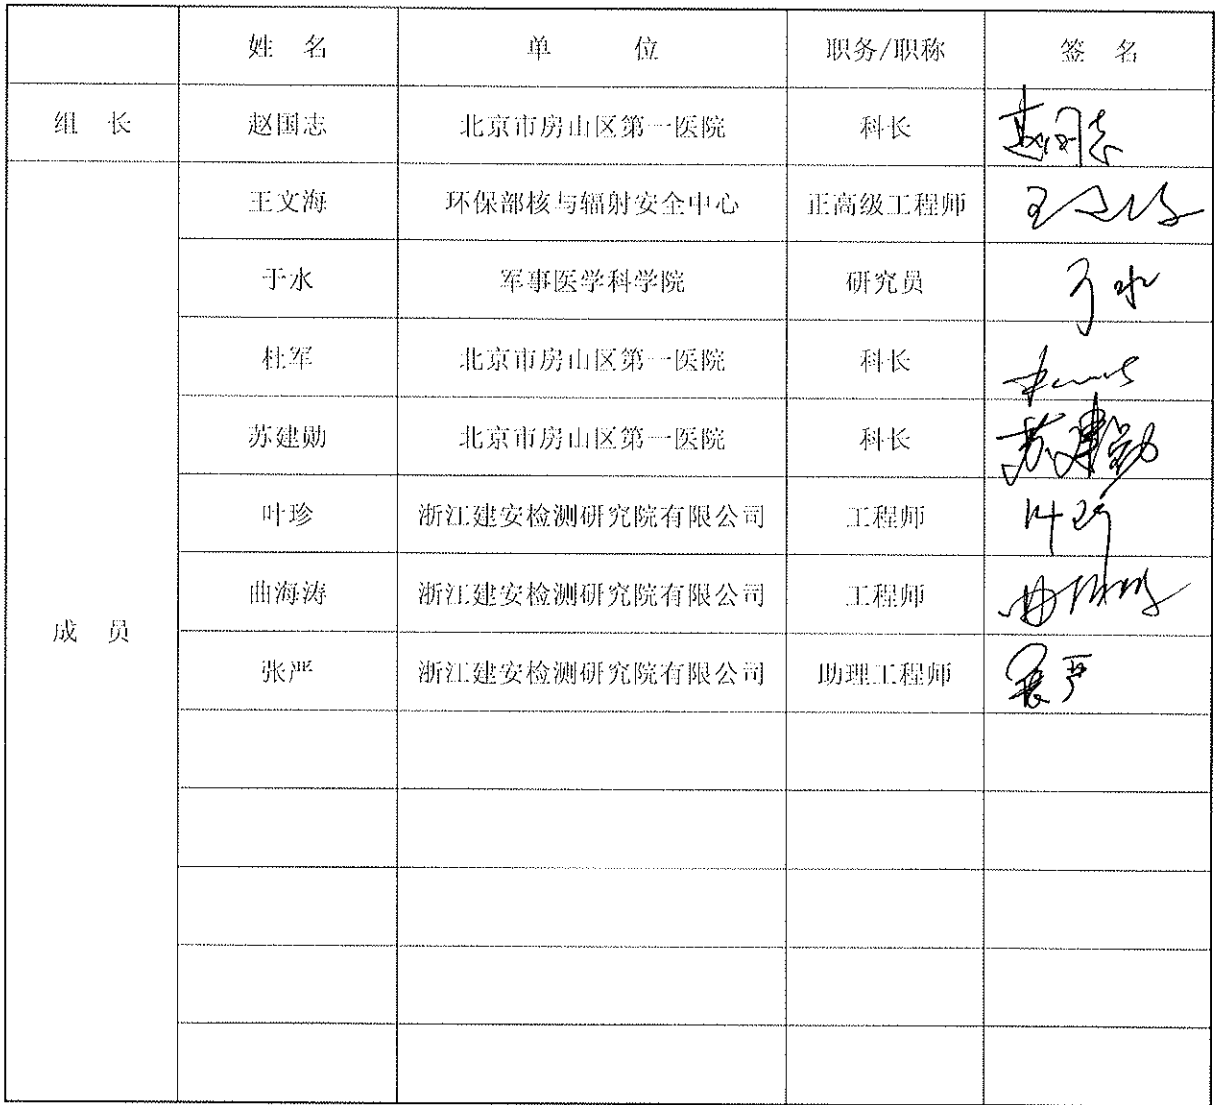 姓 名 单 位 职务/职称 签 名
组 长 赵国志 北京市房山区第一医院 科长 赵国志
王文海 环保部核与辐射安全中心 正高级工程师 王文海
于水 军事医学科学院 研究员 于水
杜军 北京市房山区第一医院 科长
苏建勋 北京市房山区第一医院 科长 苏建勋
叶珍 浙江建安检测研究院有限公司 工程师 叶珍
曲海涛 浙江建安检测研究院有限公司 工程师 曲海涛
成 员
张严 浙江建安检测研究院有限公司 助理工程师 张严